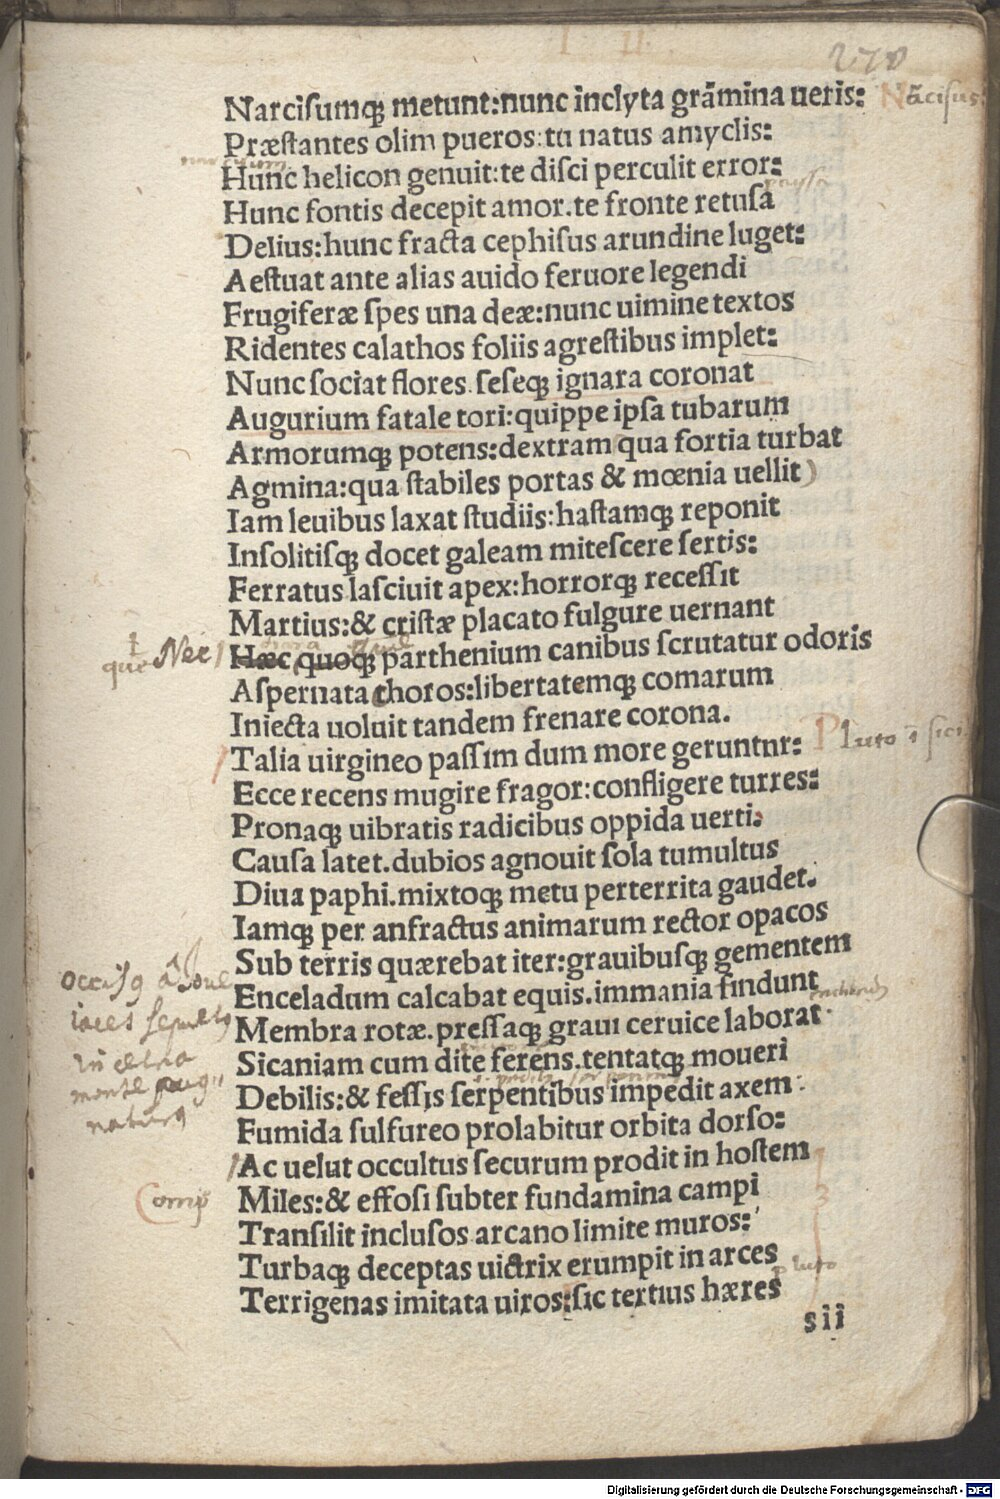 II
278
Narcisumqꝫ metunt:nunc inclyta grãmina ueris:
Nãcisus
Præstantes olim pueros:tu natus amyclis:
Hunc helicon genuit:te disci perculit error:
Hunc fontis decepit amor.te fronte retusa
Delius:hunc fracta cephisus arundine luget:
Aestuat ante alias auido feruore legendi
Frugiferæ spes una deæ:nunc uimine textos
Ridentes calathos foliis agrestibus implet:
Nunc sociat flores.seseqꝫ ignara coronat
Augurium fatale tori:quippe ipsa tubarum
Armorumqꝫ potens:dextram qua fortia turbat
Agmina:qua stabiles portas & mœnia uellit)
Iam leuibus laxat studiis:hastamqꝫ reponit
Insolitisqꝫ docet galeam mitescere sertis:
Ferratus lasciuit apex:horrorqꝫ recessit
Martius:& cristæ placato fulgure uernant
que Nec
Hæc quoqꝫ parthenium canibus scrutatur odoris
Aspernata choros:libertatemqꝫ comarum
Iniecta uoluit tandem frenare corona.
Talia uirgineo passim dum more geruntnr:
Pluto ĩ sici
Ecce recens mugire fragor:confligere turres:
Pronaqꝫ uibratis radicibus oppida uerti:
Causa latet.dubios agnouit sola tumultus
Diua paphi.mixtoqꝫ metu perterrita gaudet.
Iamqꝫ per anfractus animarum rector opacos
Sub terris quærebat iter:grauibusqꝫ gementem
Enceladum calcabat equis.immania findunt
Membra rotæ.pressaqꝫ graui ceruice laborat
Sicaniam cum dite ferens.tentatqꝫ moueri
Debilis:& fessis serpentibus impedit axem:
Fumida sulfureo prolabitur orbita dorso:
Ac uelut occultus securum prodit in hostem
Comp
Miles:& effosi subter fundamina campi
Transilit inclusos arcano limite muros:
Turbaqꝫ deceptas uictrix erumpit in arces
pluto
Terrigenas imitata uiros:sic tertius hæres
sii
Digitalisierung gefördert durch die Deutsche Forschungsgemeinschaft - DFG